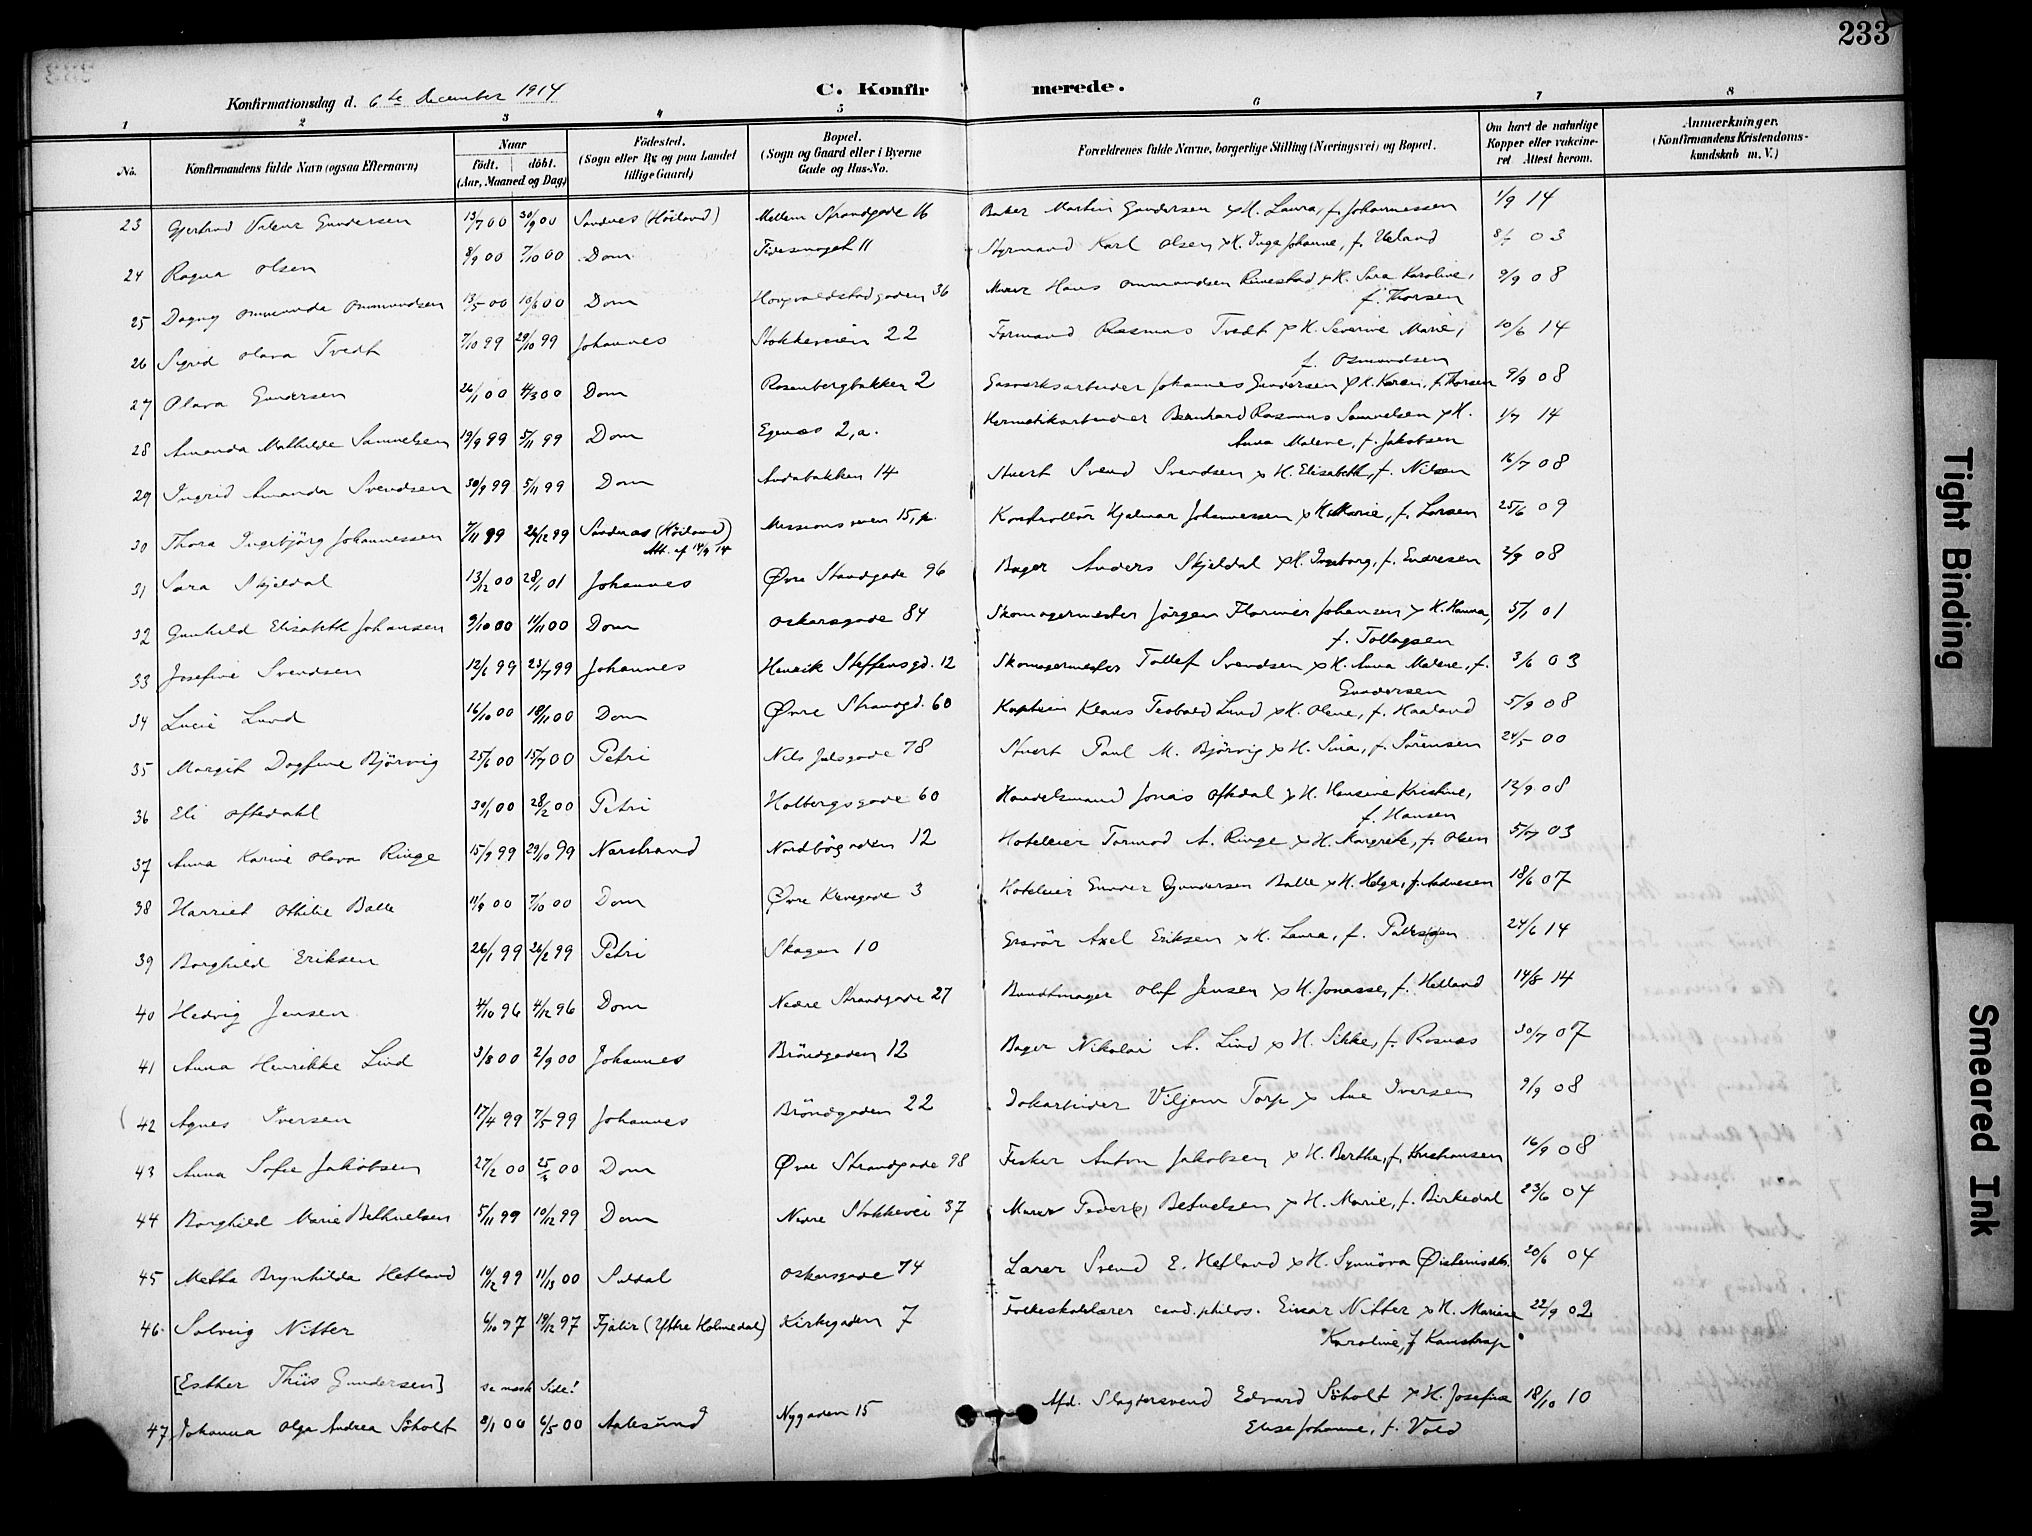 233
Konfirmationsdag d. 6te December 1914
C. Konfirmerede.
1 2 3 4 5 6 7 8
No. Konfirmandens fulde Navn (ogsaa Efternavn) Naar födt. döbt. (Aar, Maaned og Dag) Födested. (Sogn eller By og paa Landet tillige Gaard) Bopæl. (Sogn og Gaard eller i Byerne Gade og Hus-No. Forældrenes fulde Navne, borgerlige Stilling (Næringsvei) og Bopæl. Om havt de naturlige Kopper eller vakcineret. Attest herom. Anmærkninger. (Konfirmandens Kristendomskundskab m. V.)
23 Gjertrud Valeur Gundersen 13/7 00 30/9 00 Sandnes (Höiland) Mellem Strandgade 16 Baker Martin Gundersen x H. Laura, f. Johannessen 1/9 14
24 Ragna Olsen 8/9 00 7/10 00 Dom 11 Styrmand Karl Olsen x H. Inga Johanne, f. Ueland 03
25 Dagny Ommunda Ommundsen 13/5 00 10/6 00 Dom 36 Murer Hans Ommundsen Rennestad x H. Sara Karoline, 9/9 08
f. Thorsen
26 Sigrid Olava Tvedt 7/10 99 29/10 99 Johannes Stokkeveien 22 Formand Rasmus Tvedt x H. Severine Marie, 10/6 14
f. Osmundsen
27 Olava Gundersen 26/1 00 4/3 00 Dom Rosenbergbakken 2 Gasverksarbeider Johannes Gundersen x H. Karen, f. Thorsen 9/9 08
28 Amanda Mathilde Samuelsen 19/9 99 5/11 99 Dom Egenæs 2, a. Hermetikarbeider Bernhard Rasmus Samuelsen x H. 1/7 14
Anna Malene, f. Jakobsen
29 Ingrid Amanda Svendsen 30/9 99 5/11 99 Dom Andabakken 14 Stuert Svend Svendsen x H. Elisabeth, f. Nilsen 16/7 08
30 Thora Ingebjörg Johannessen 7/11 99 26/12 99 Sandnes (Höiland) Missionsveien 15, Kontrollör Hjalmar Johannessen x H. Marie, f. Larsen 25/6 09
Att. af 14/9 14
31 Sara Skjeldal 13/12 00 28/1 01 Johannes Øvre Standgade 96 Bager Anders Skjeldal x H. Ingeborg, f. Endresen 2/9 08
32 Gunhild Elisabeth Johansen 9/10 00 11/11 00 Dom Oskarsgade 84 Skomagermester Jörgen Florinus Johansen x H. Hanna, 5/1 01
f. Tollagsen
33 Josefine Svendsen 12/6 99 23/7 99 Johannes Henrik Steffensgd. 12 Skomagermester Tollef Svendsen x H. Anna Malene, f. 3/6 03
Gundersen
34 Lucie Lund 16/10 00 18/11 00 Dom Øvre Strandgd. 60 Kaptein Klaus Teobald Lund x H. Olene, f. Haaland 5/9 08
35 Margit Dagfine Bjørvig 25/6 00 15/7 00 Petri Nils Juelsgade 78 Stuert Paul M. Bjørvig x H. Sina, f. Sörensen 24/5 00
36 Eli Oftedahl 30/1 00 28/2 00 Petri Holbergsgade 60 Handelsmand Jonas Oftedal x H. Hansine Kristine, 12/9 08
f. Hansen
37 Anna Karine Olava Ringe 15/9 99 29/10 99 Narstrand Nordbögaden 12 Hoteleier Tormod A. Ringe x H. Margrete, f. Olsen 5/7 03
38 Harriet Othilie Balle 11/9 00 7/10 00 Dom Øvre Klevegade 3 Hoteleier Gunder Gundersen Balle x H. Helga, f. Andresen 18/6 07
39 Borghild Eriksen 26/1 99 26/2 99 Petri Skagen 10 Gravör Axel Eriksen x H. Laura, f. 24/6 14
40 Hedvig Jensen 4/10 96 4/12 96 Dom Nedre Strandgade 27 Bundtmager Oluf Jensen x H. Jonasse, f. Helland 14/8 14
41 Anna Henrikke Lind 3/8 00 2/9 00 Johannes Bröndgaden 12 Bager Nikolai A. Lind x H. Sikke, f. Rosnæs 30/7 07
42 Agnes Iversen 17/4 99 7/5 99 Johannes Bröndgaden 22 Viljam Torp x Ane Iversen 9/9 08
43 Anna Sofie Jakobsen 27/2 00 25/3 00 Dom Øvre Strandgade 98 Fisker Anton Jakobsen x H. Berthe, f. Kristiansen 16/9 08
44 Borghild Marie Bethuelsen 5/11 99 10/12 99 Dom Nedre Stokkevei 37 Murer Peder Betuelsen x H. Marie, f. Birkedal 23/6 04
45 Metha Brynhilda Hetland 10/12 99 11/13 00 Suldal Oskarsgade 74 Lærer Svend E. Hetland x H. Synnöva Øisteinsdtr. 20/6 04
46. Solveig Nitter 6/10 97 19/12 97 Fjaler (Ytre Holmedal) Kirkegaden 7 Folkeskolelærer cand. philos. Einar Nitter x H. Mariane 22/9 02
Karoline, f. Kanstrup
[Esther Thiis Gundersen] se næste Side!
47 Johanna Olga Andrea Söholt 8/1 00 6/5 00 Aalesund Nygaden 15 Afd. Slagtersvend Edvard Söholt x H. Josefine 18/10 10
Elise Johanne, f. Vold
Tight Binding
Smeared Ink